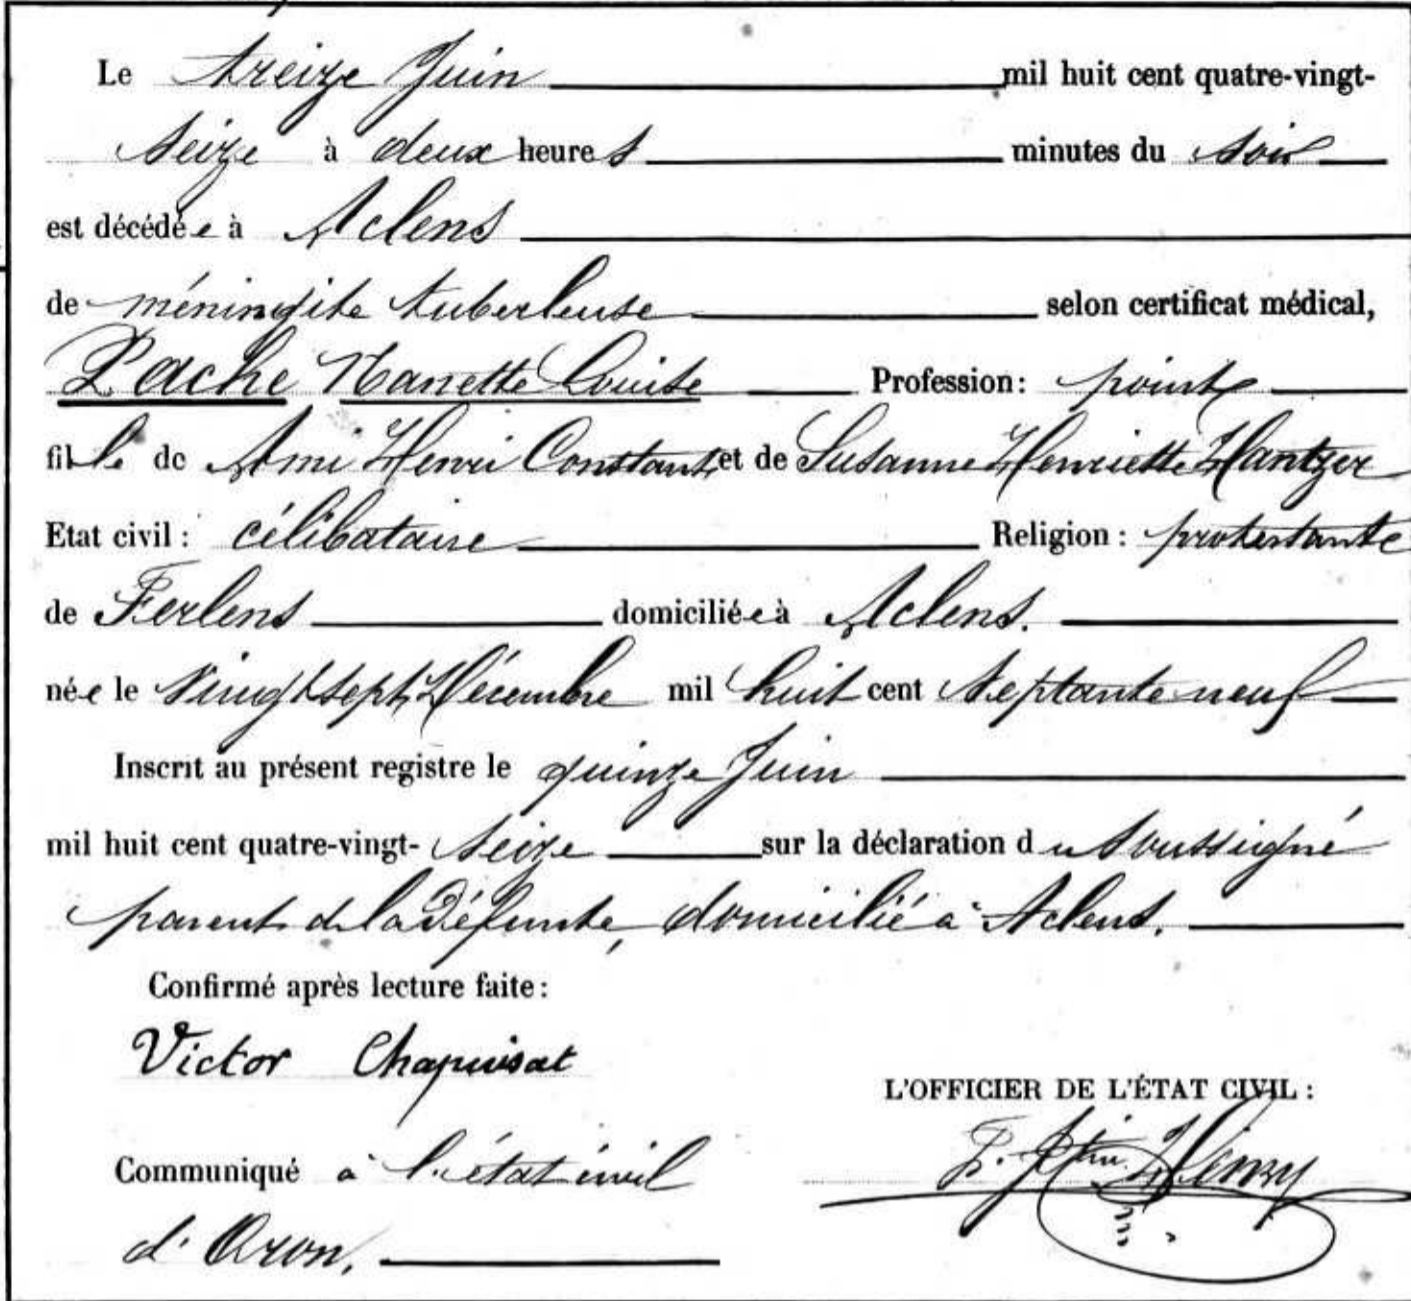 Le treize Juin mil huit cent quatre-vingt-
seize à deux heures minutes du soir
est décédée à Aclens
de méningite tuberleuse selon certificat médical,
Pache Nanette Louise Profession:
fille de Ami Henri Constant et de Susanne Henriette Hantzer
Etat civil : célibataire Religion : protestante
de Ferlens domiciliée à Aclens.
née le Vingt sept Décembre mil huit cent septante neuf
Inscrit au présent registre le quinze Juin
mil huit cent quatre-vingt- seize sur la déclaration du soussigné
parent de la défunte, domicilié à Aclens.
Confirmé après lecture faite :
Victor Chapuisat
L'OFFICIER DE L'ÉTAT CIVIL :
Communiqué à l'état civil
d'Oron.